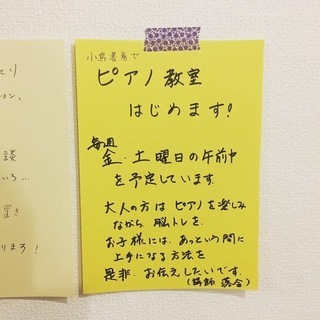 とり
ョン、
談
いろ…
置き
ります!
小鳥書房で
ピアノ教室
はじめます!
毎週
金・土曜日の午前中
を予定しています。
大人の方は ピアノを楽しみ
ながら、脳トレを。
お子様には、あっという間に
上手になる方法を
是非、お伝えしたいです。
(講師 落合)